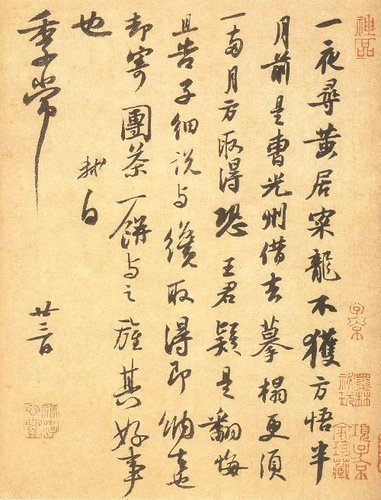 一夜尋黄居寀龍不獲方悟半
月前是曹光州借去摹榻更須
一兩月方取得恐王君疑是翻悔
且告子細說与纔取得即納去也
却寄團茶一餅与之旌其好事
也
軾白
季常
廿三日
神品
子京
項子京家珍藏